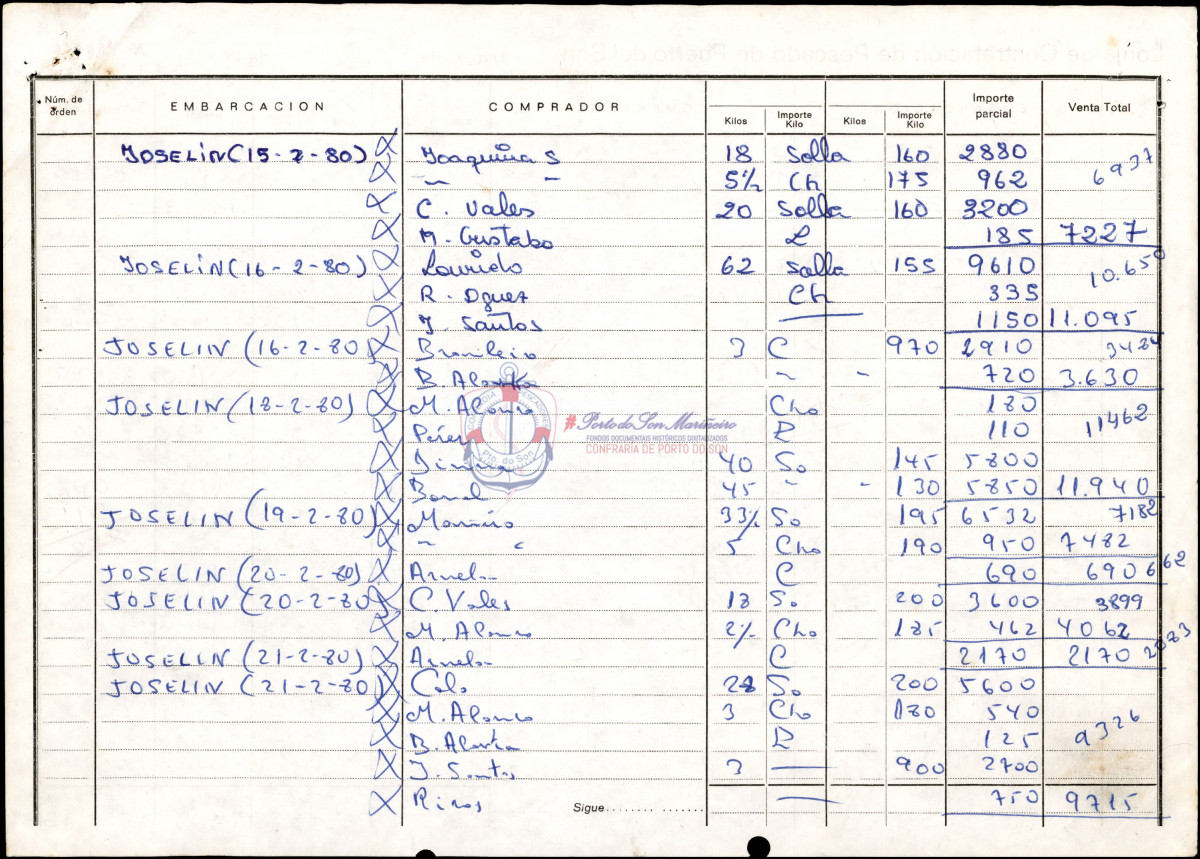 Núm. de orden EMBARCACION COMPRADOR Kilos Importe Kilo Kilos Importe Kilo Importe parcial Venta Total
JOSELIN (15-2-80) X Joaquina S 18 Solla 160 2880 6937
X ~ - 5½ Ch 175 962
X C. Vales 20 Solla 160 3200
X M. Gustabo L 185 7227
JOSELIN (16-2-80) X Lourido 62 Solla 155 9610 10.650
X R. Dguez Ch 335
X J. Santos — 1150 11.095
JOSELIN (16-2-80) X Brasileiro 3 C 970 2910 3484
X B. ~ - 720 3.630
JOSELIN (18-2-80) X M. Alonso Cho 180 11462
X Pérez 110
X 40 So 145 5800
X 45 - - 130 5850 11.940
JOSELIN (19-2-80) X 33½ So 195 6532 7182
X ~ 5 Cho 190 950 7482
JOSELIN (20-2-80) X Arnela C 690 690 662
JOSELIN (20-2-80) X C. Vales 18 So 200 3600 3899
X M. Alonso 2½ Cho 185 462 4062
JOSELIN (21-2-80) X Arnela C 2170 2170 2083
JOSELIN (21-2-80) X Colo 28 So 200 5600
X M. Alonso 3 Cho 180 540 9326
X B. 125
X J. Santos 3 — 900 2700
X Rinos Sigue — 750 9715
COFRADIA PESCADORES
Pto. do Son
#Porto do Son Mariñeiro
FONDOS DOCUMENTAIS HISTÓRICOS DIXITALIZADOS
CONFRARÍA DE PORTO DO SON